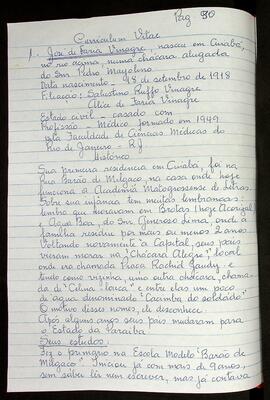 Pag 90
Curriculum Vitae
1. José de Faria Vinagre, nasceu em Cuiabá,
no rio acima, numa chácara alugada
do Snr. Pedro Mayolino.
Data nascimento - 98 de setembro de 1918
Filiação: Salustino Ruffo Vinagre
Alice de Faria Vinagre
Estado civil - casado com
Profissão - Médico formado em 1949
pela Faculdade de Ciências Médicas do
Rio de Janeiro - R.J
Histórico
Sua primeira residência em Cuiabá, foi na
Rua Barão de Melgaço, na casa onde hoje
funciona a Academia Matogrossense de Letras.
Sobre sua infância tem muitas lembranças:
lembra que moravam em Brotas (hoje Acorizal)
e Agua Boa, do Snr. Generoso Lima, onde a
família residiu por mais ou menos 2 anos
Voltando novamente a Capital, seus pais
vieram morar na "Chácara Alegre", local
onde era chamada Praça Rachid Jaudy, e
tendo como vizinha, uma outra chácara, chama-
da de "Celina" e entre elas um poço
de agua denominado "Cacimba do soldado".
O motivo desses nomes, ele desconhece.
Após alguns anos seus pais mudaram para
o Estado da Paraiba
Seus estudos:
Fez o primário na Escola Modelo "Barão de
Melgaço". Iniciou já com mais de 9 anos,
sem saber ler nem escrever, mas já contava